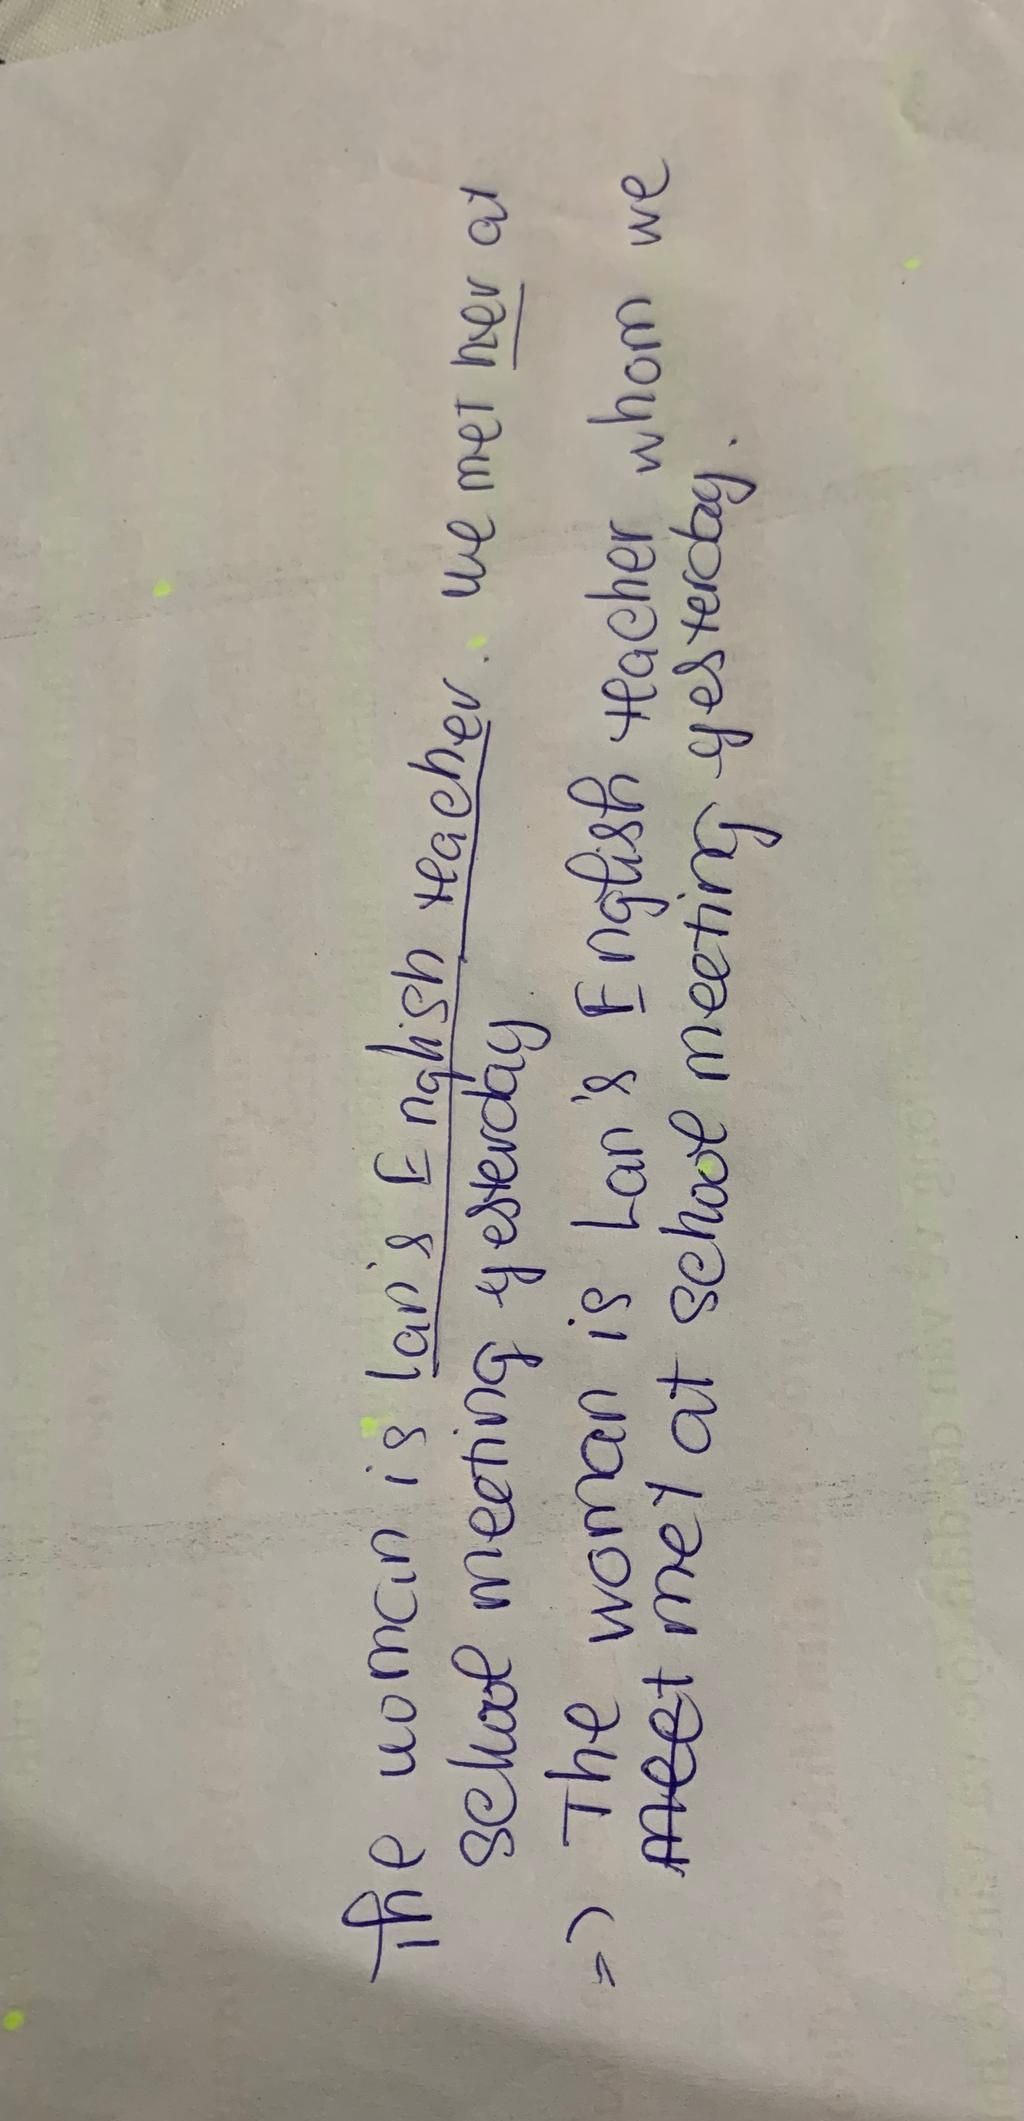 The woman is Lan's English teacher. we met her at
school meeting yesterday
=> The woman is Lan's English teacher whom we
meet met at school meeting yesterday.